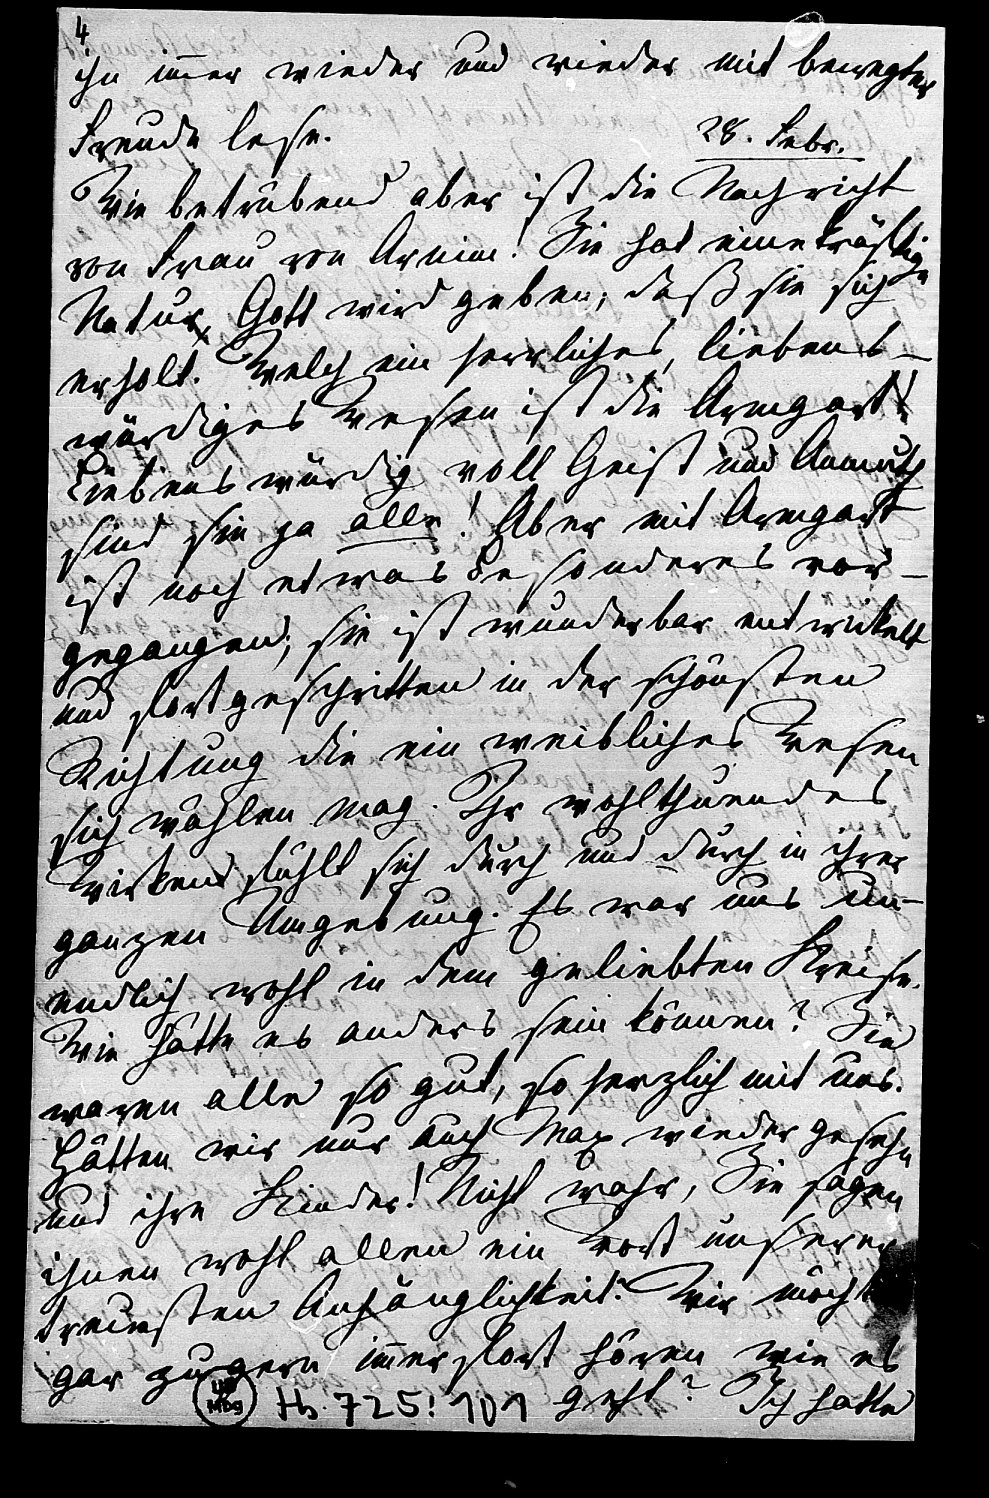 4
ihn immer wieder und wieder mit bewegter
Freude lese.
28. Febr.
Wie betrübend aber ist die Nachricht
von Frau von Arnim! Sie hat eine kräftige
Natur, Gott wird geben, daß sie sich
erholt. Welch ein herrliches, liebens-
würdiges Wesen ist die Armgart!
Liebenswürdig voll Geist und Anmuth
sind sie ja alle! Aber mit Armgart
ist noch etwas Besonderes vor-
gegangen; sie ist wunderbar entwickelt
und fortgeschritten in der schönsten
Richtung die ein weibliches Wesen
sich wählen mag. Ihr wohlthuendes
Wirken fühlt sich durch und durch in ihrer
ganzen Umgebung. Es war uns un-
endlich wohl in dem geliebten Kreise.
Wie hätte es anders sein können? Sie
waren alle so gut, so herzlich mit uns.
Hätten wir nur auch Max wieder gesehn
und ihre Kinder! Nicht wahr, Sie sagen
ihnen wohl allen ein Wort unserer
treuesten Anhänglichkeit? Wir möchten
gar zu gern immer fort hören wie es
geht? Ich hatte
UB Mbg
Hs. 725:101